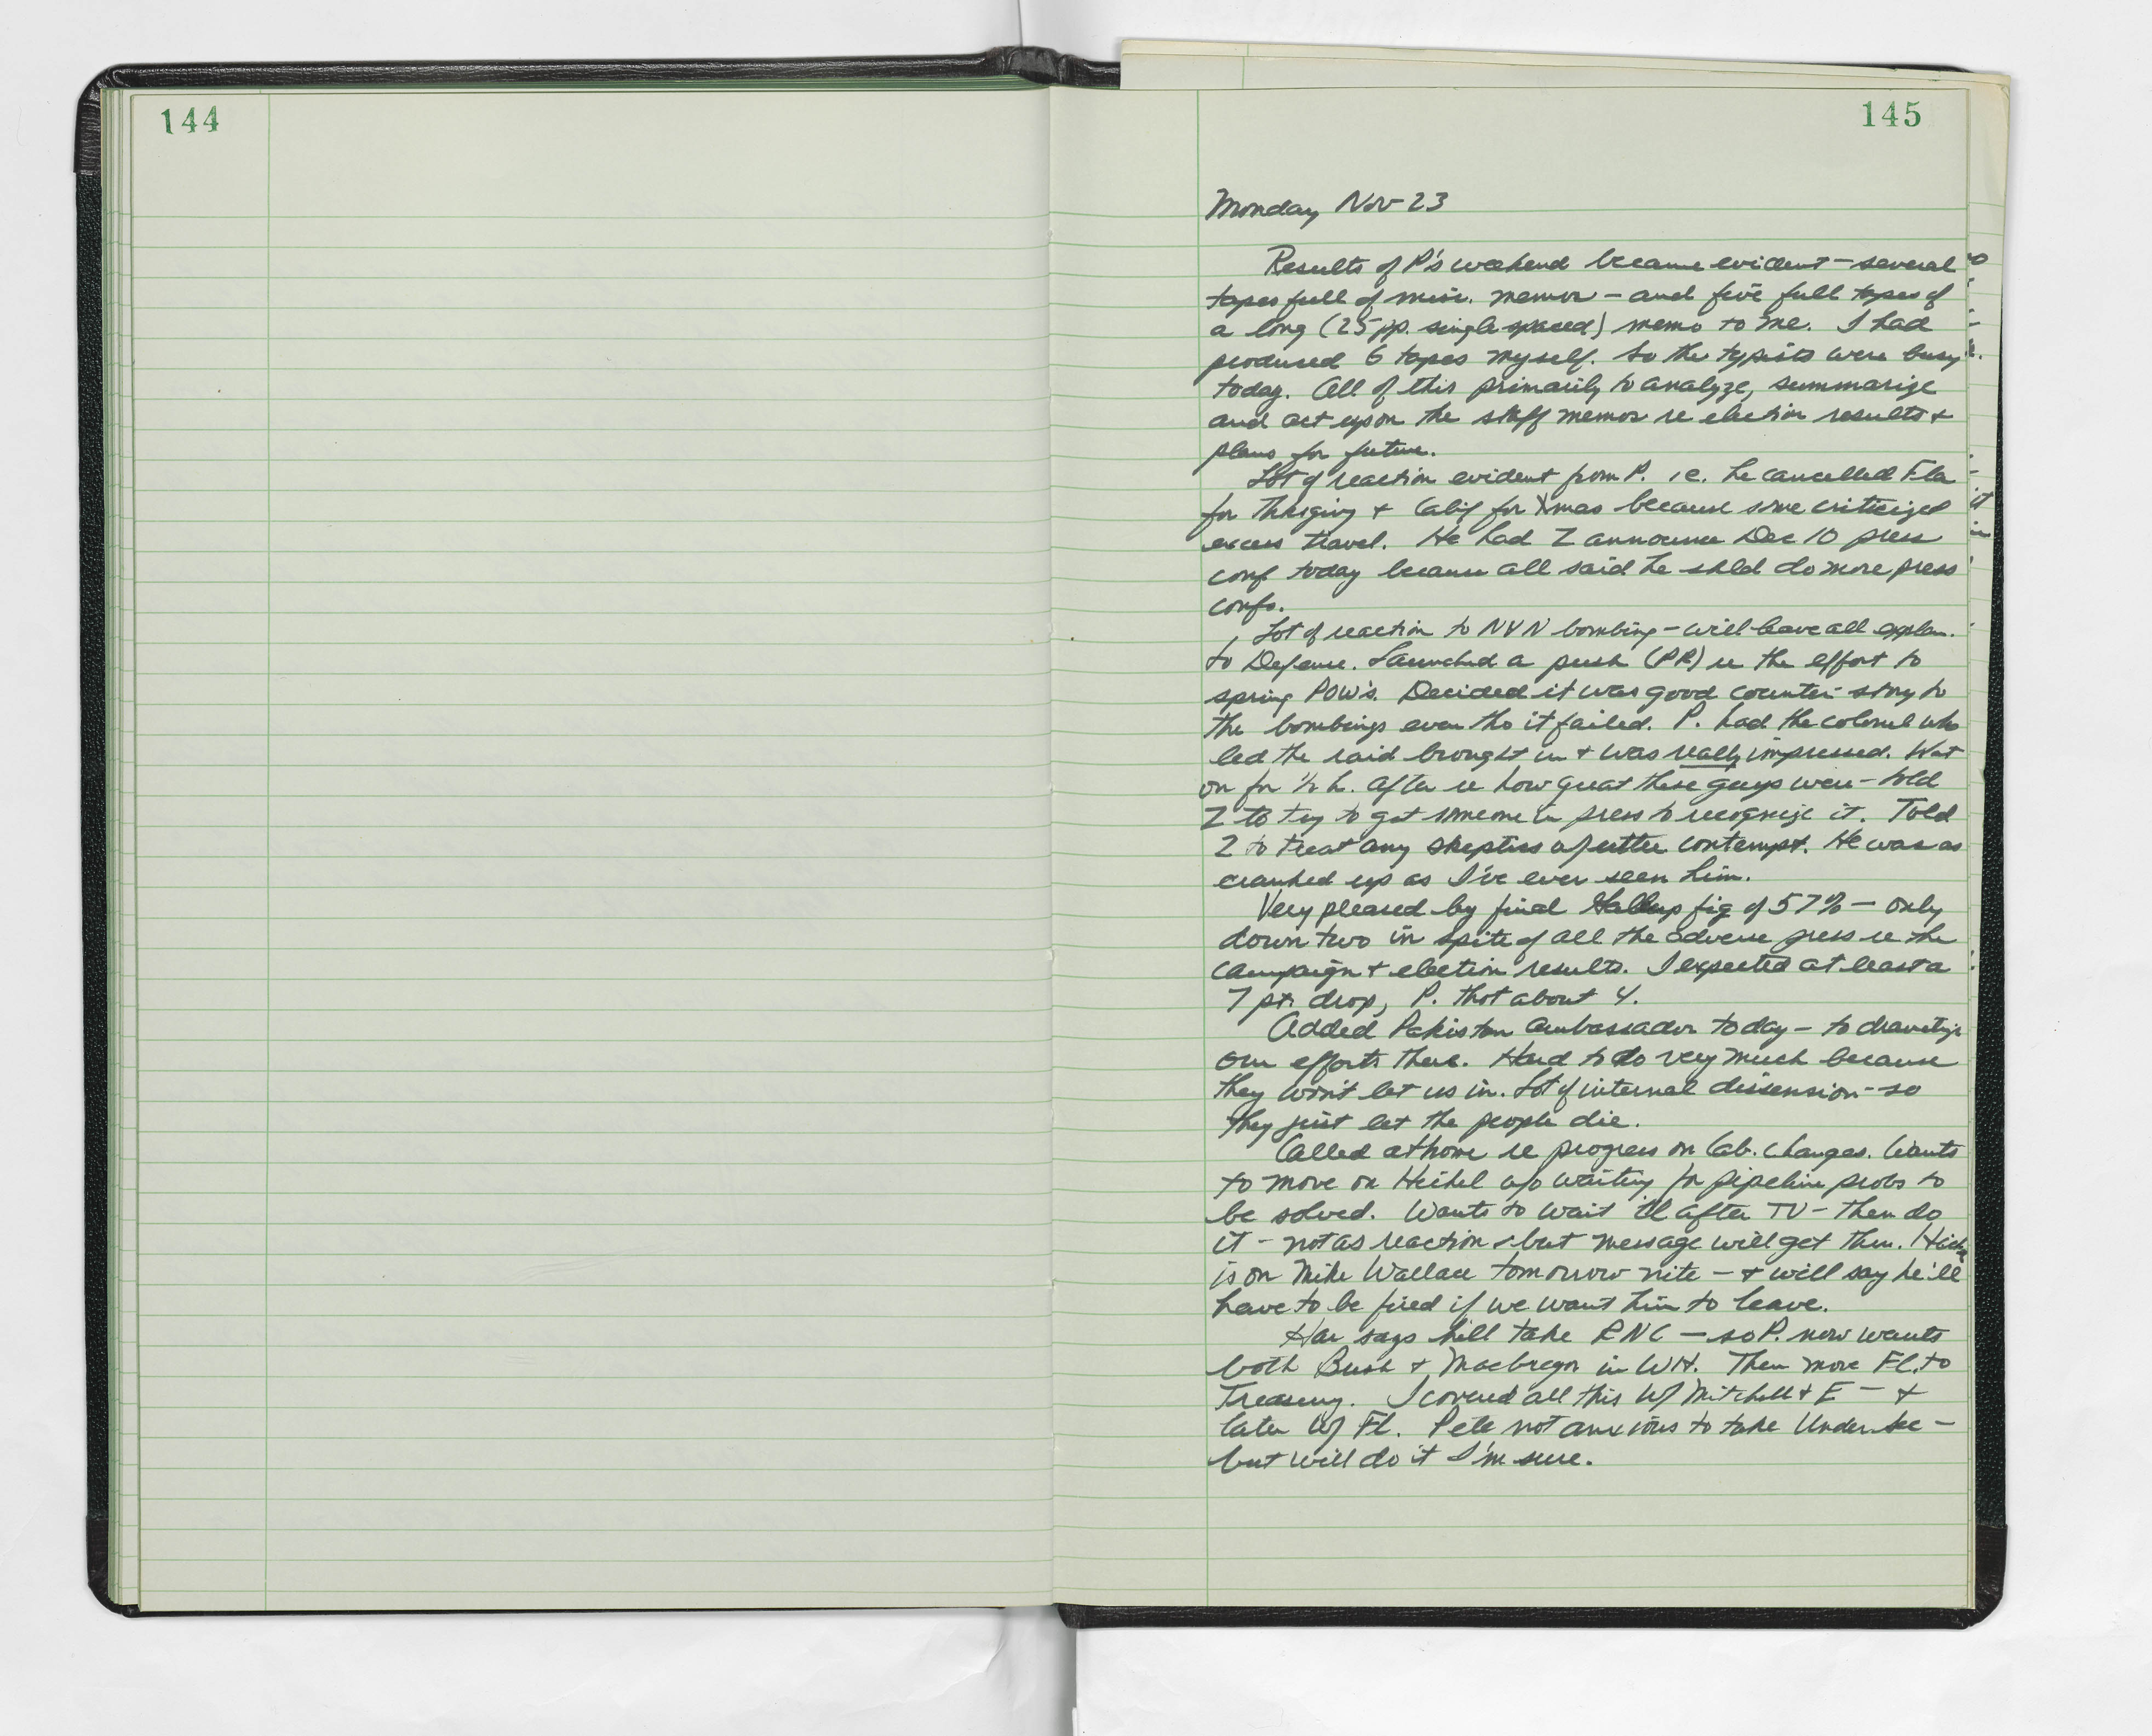 144
145
Monday Nov 23
Results of P's weekend became evident – several
tapes full of misc. memos – and five full tapes of
a long (25 pp. single spaced) memo to me. I had
produced 6 tapes myself. So the typists were busy
today. All of this primarily to analyze, summarize
and act upon the staff memos re election results +
plans for future.
Lot of reaction evident from P. ie. he cancelled Fla
for Thksgivg + Calif for Xmas because some criticized
excess travel. He had Z announce Dec 10 press
conf today because all said he shld do more press
confs.
Lot of reaction to NVN bombing – will leave all explan.
to Defense. Launched a push (PR) re the effort to
spring POW's. Decided it was good counter-story to
the bombings even tho it failed. P. had the colonel who
led the raid brought in + was really impressed. Went
on for ½ h. after re how great these guys were – told
Z to try to get someone in press to recognize it. Told
Z to treat any skeptics w/utter contempt. He was as
cranked up as I've ever seen him.
Very pleased by final Gallup fig of 57% – only
down two in spite of all the adverse press re the
campaign + election results. I expected at least a
7 pt. drop, P. thot about 4.
Added Pakistan Ambassador today – to dramatize
our efforts there. Hard to do very much because
they won't let us in. Lot of internal dissension – so
they just let the people die.
Called at home re progress on Cab. changes. Wants
to move on Hickel w/o waiting for pipeline probs to
be solved. Wants to wait til after TV – then do
it – not as reaction – but message will get thru. Hickel
is on Mike Wallace tomorrow nite – + will say he'll
have to be fired if we want him to leave.
Har says he'll take RNC – so P. now wants
both Bush + MacGregor in WH. Then move Fl. to
Treasury. I covered all this w/ Mitchell + E – +
later w/ Fl. Pete not anxious to take Undersec –
but will do it I'm sure.